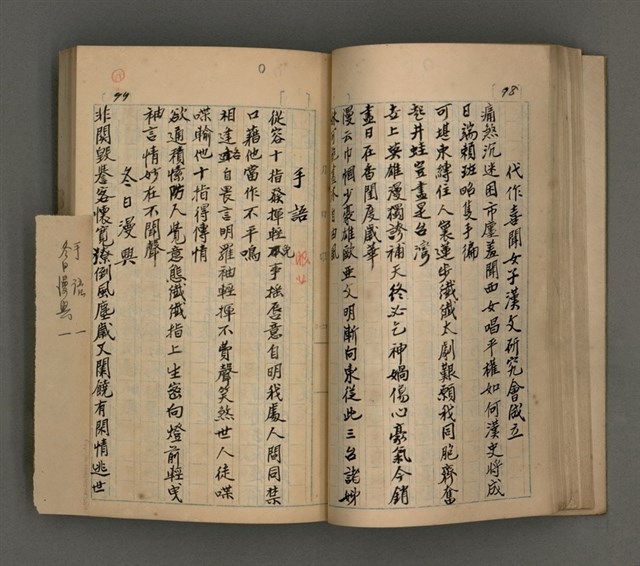 98
代作喜聞女子漢文研究會成立
痛然沉迷困市塵羞聞西女唱平權如何漢史將成
日端賴班昭隻手編
可堪束縛任人裏蓮步纖纖太劇艱願我同胞齊奮
起井蛙豈盡是台灣
世上英雄漫獨誇補天終必乞神媧傷心豪氣今銷
盡日在香閨度歲華
漫云巾幗少豪雄歐亞文明漸向東從此三台諸姊
99
手語
從容十指發揮輕
事搖唇意自明我處人間同禁
口藉他當作不平鳴
相逢自畏言明羅袖輕揮不費聲笑煞世人徒喋
喋輸他十指得傳情
欲通積愫防人覺意態纖纖指上生密向燈前輕曳
袖言情妙在不聞聲
冬日漫興
非関毀譽客懷寬潦倒風塵歲又闌饒有閑情逃世
手語一
冬日漫興一